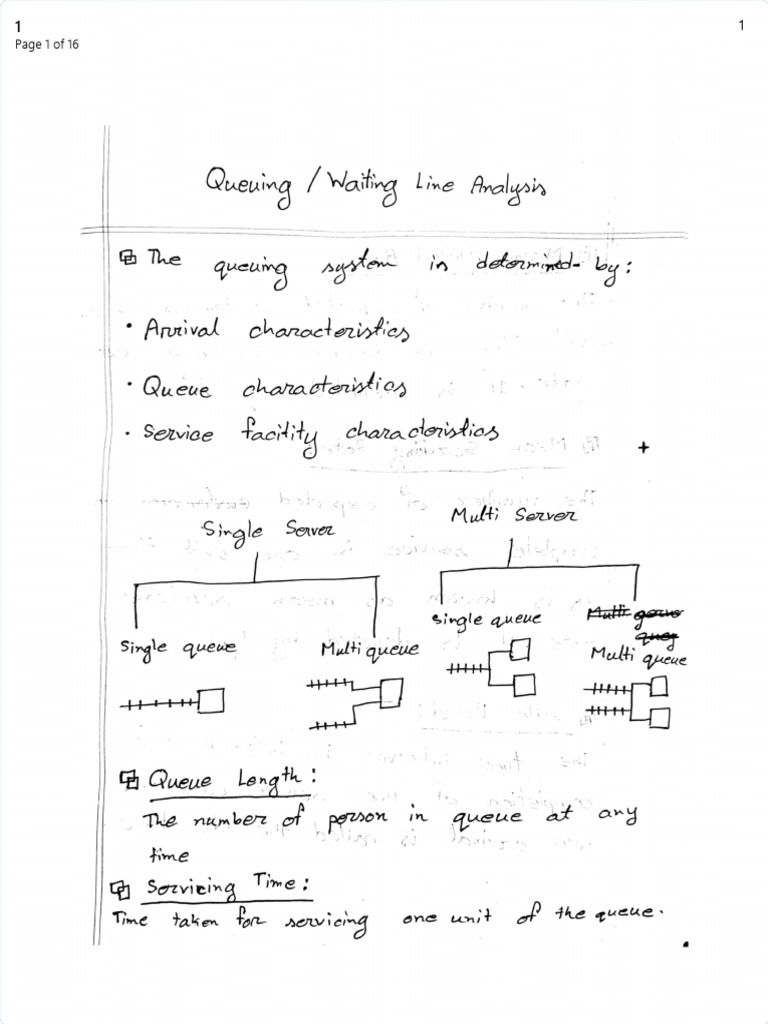 1
1
Page 1 of 16
Queuing / Waiting Line Analysis
The queuing system is determined by:
• Arrival characteristics
• Queue characteristics
• Service facility characteristics
+
Single Server
Multi Server
Single queue
Multi queue
single queue
Multi queue
Queue Length:
The number of person in queue at any
time
Servicing Time:
Time taken for servicing one unit of the queue.